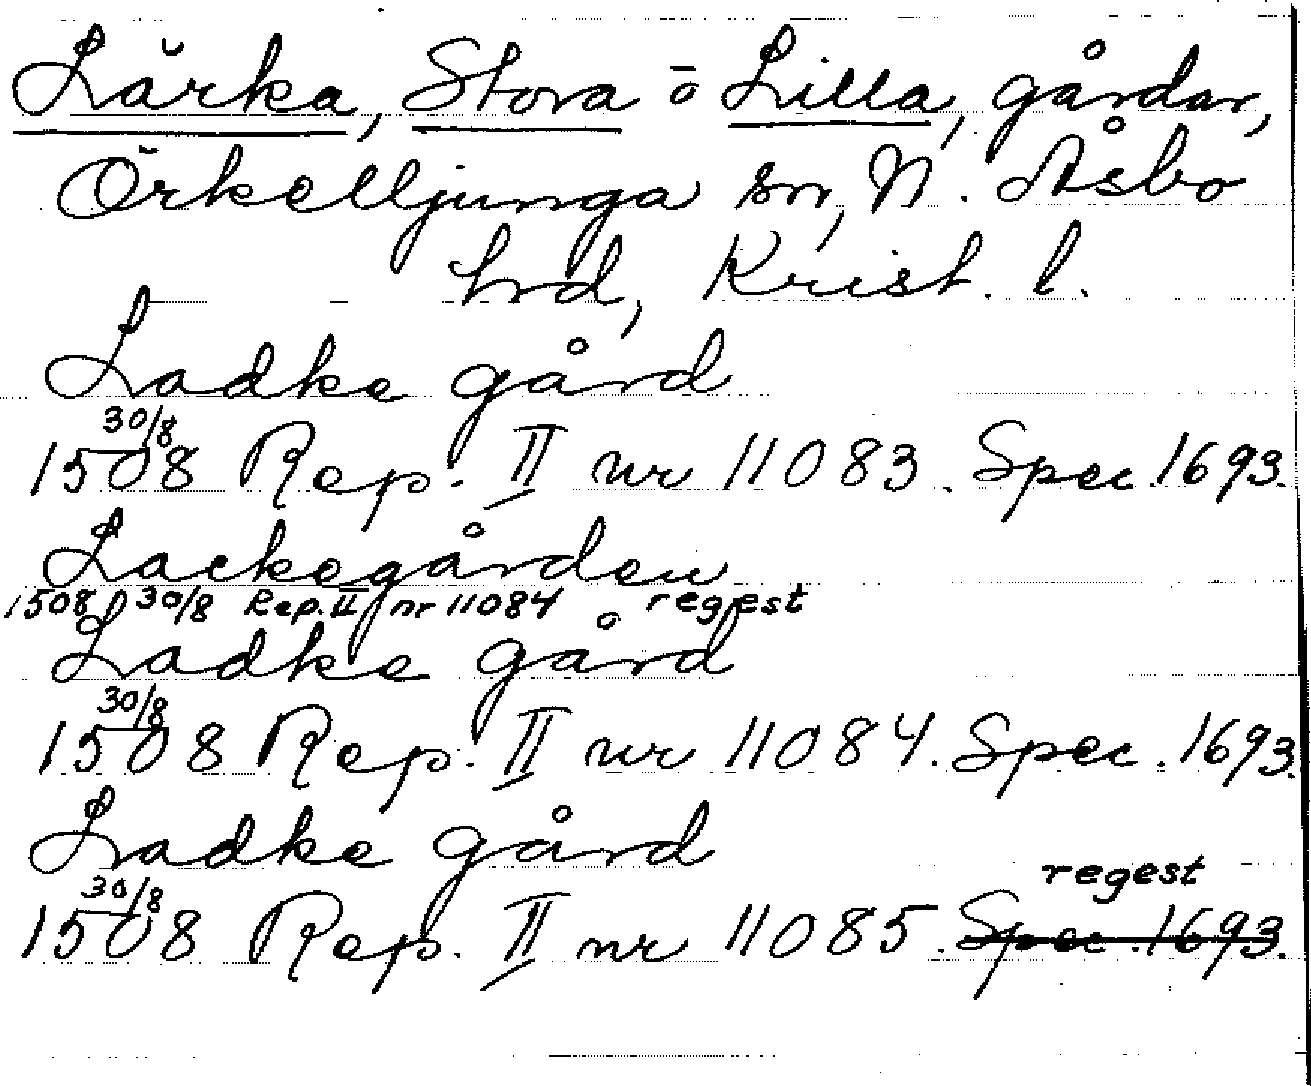 Lärka, Stora o Lilla, gårdar,
Örkelljunga sn, N. Åsbo
hrd, Krist. l.
Ladke gård
1508 30/8 Rep. II nr 11083. Spec. 1693.
Lackegården
1508 30/8 Rep. II nr 11084 regest
Ladke gård
1508 30/8 Rep. II nr 11084. Spec. 1693.
Ladke gård
regest
1508 30/8 Rep. II nr 11085. Spec. 1693.